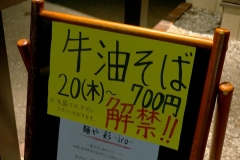 牛油そば
20(木)~700円
解禁!!
麺や 彩 -iro-